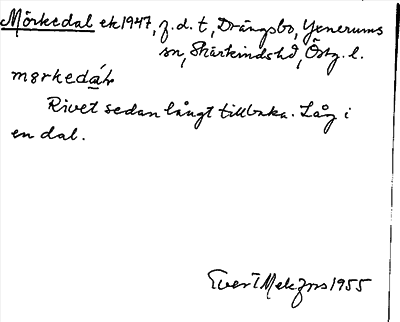 Mörkedal ek 1947, f.d. t, Drängsbo, Yxnerums
sn, Skärkinds hd, Östg. l.
mørkedál
Rivet sedan långt tillbaka. Låg i
en dal.
Evert Melefors 1955